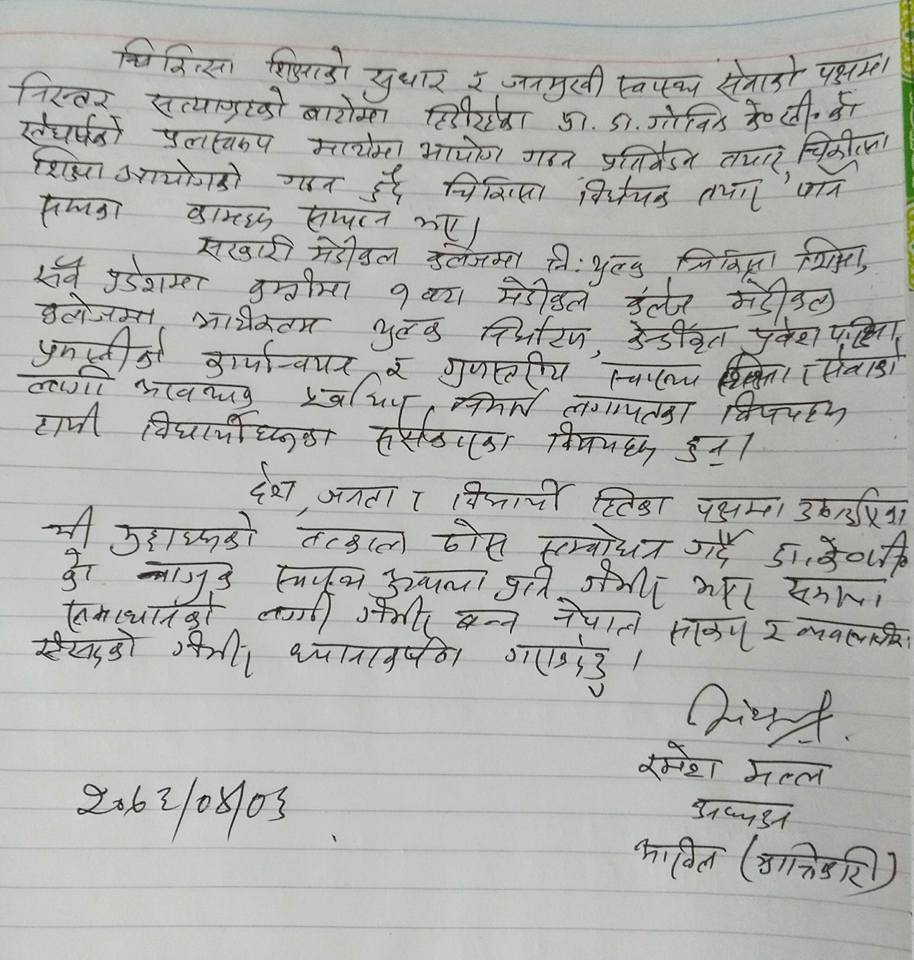 चिकित्सा शिक्षाको सुधार र जनमुखी स्वास्थ्य सेवाको पक्षमा
निरन्तर सत्याग्रहको बाटोमा हिडिरहेका प्रा. डा. गोविन्द के॰सी॰ को
संघर्षको फलस्वरूप माथेमा आयोग गठन प्रतिवेदन तयार, चिकित्सा
शिक्षा आयोगको गठन हुँदै चिकित्सा विधेयक तयार पार्ने
सम्मका कामहरू सम्पन्न भए।
सरकारी मेडीकल कलेजमा नि:शुल्क चिकित्सा शिक्षा,
सबै प्रदेशमा कम्तीमा १ वटा मेडीकल कलेज मेडीकल
कलेजमा अधिकतम शुल्क निर्धारण, केन्द्रीकृत प्रवेश परीक्षा
प्रणालीको कार्यान्वयन र गुणस्तरीय स्वास्थ्य शिक्षा र सेवाको
लागी आवश्यक लगायतका विषयहरू
हामी विद्यार्थीहरूका सरोकारका विषयहरू हुन्।
देश, जनता र विद्यार्थी हितका पक्षमा उठाईएका
यी मुद्दाहरूको तत्काल ठोस सम्बोधन गर्दै डा. के॰सी॰
को नाजुक स्वास्थ्य अवस्था प्रति गंभीर भएर समस्या
समाधानको लागी गंभीर बन्न नेपाल सरकार र व्यवस्थापिका
संसदको गंभीर ध्यानाकर्षण गराउँदछु।
रमेश मल्ल
अध्यक्ष
अखिल (क्रान्तिकारी)
२०७३/०४/०३